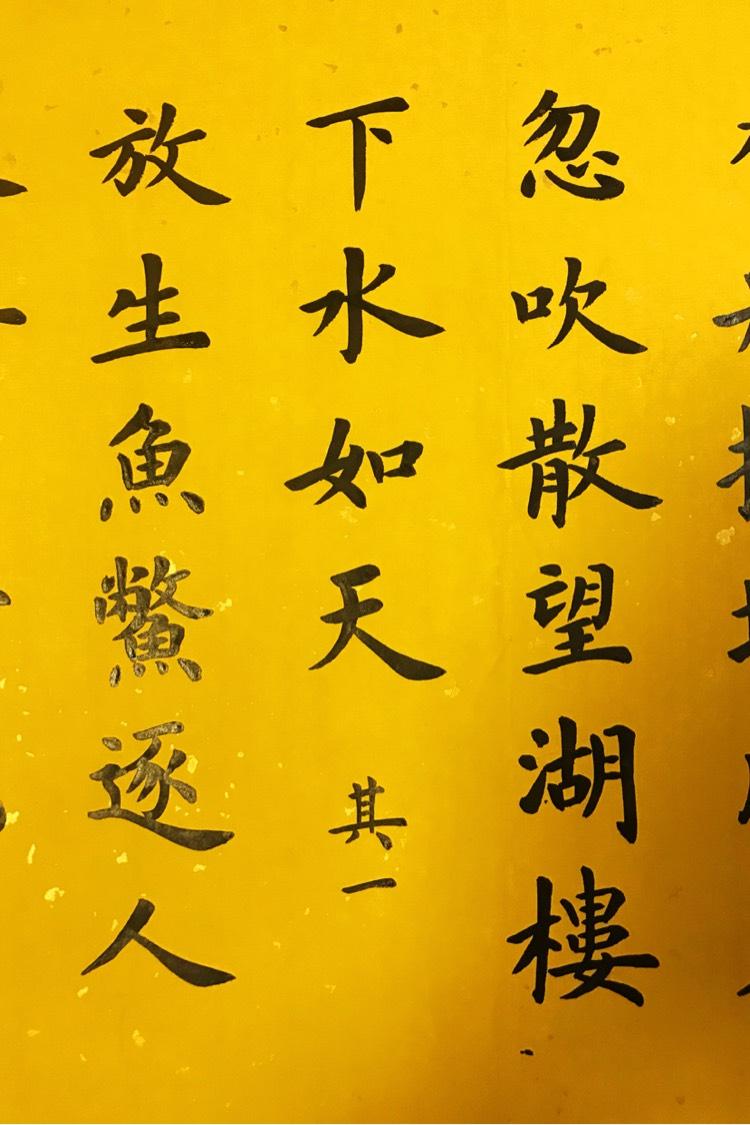 忽吹散望湖樓
下水如天
其一
放生魚鱉逐人